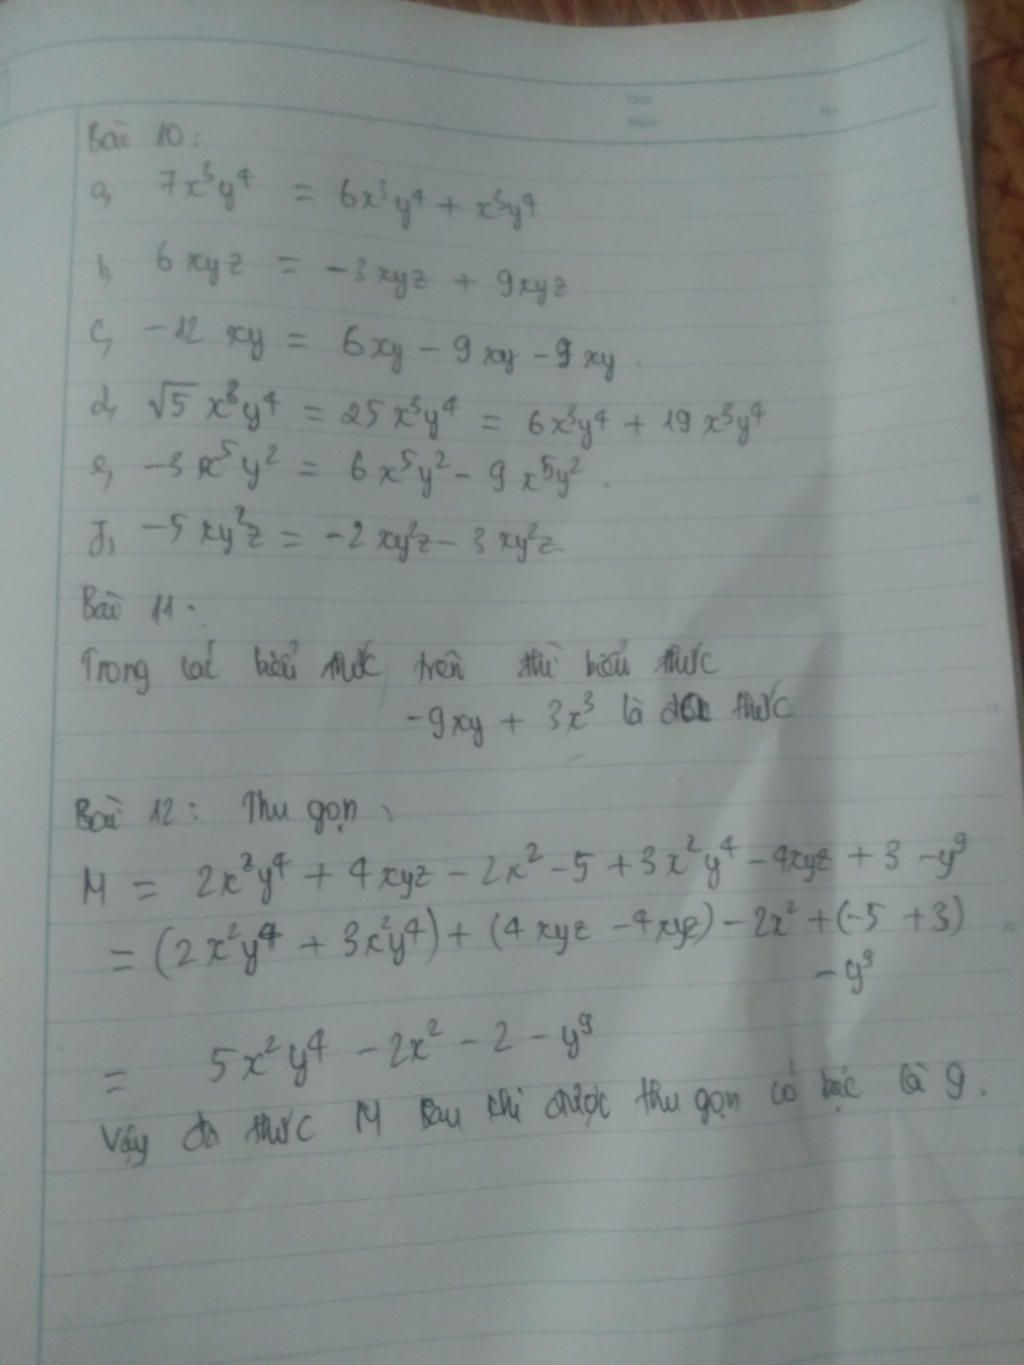 Thứ
Ngày
No.
Bài 10:
a, 7x³y⁴ = 6x³y⁴ + x³y⁴
b, 6xyz = -3xyz + 9xyz
c, -12 xy = 6xy - 9xy - 9xy.
d, √5 x³y⁴ = 25x³y⁴ = 6x³y⁴ + 19x³y⁴
e, -3x⁵y² = 6x⁵y² - 9x⁵y².
f, -5xy²z = -2xy²z - 3xy²z
Bài 11.
Trong các biểu thức trên thì biểu thức
-9xy + 3x³ là thức
Bài 12: Thu gọn:
M = 2x²y⁴ + 4xyz - 2x² - 5 + 3x²y⁴ - 4xyz + 3 - y⁹
= (2x²y⁴ + 3x²y⁴) + (4xyz - 4xyz) - 2x² + (-5 + 3)
- y⁹
= 5x²y⁴ - 2x² - 2 - y⁹
Vậy đa thức M sau khi được thu gọn có bậc là 9.